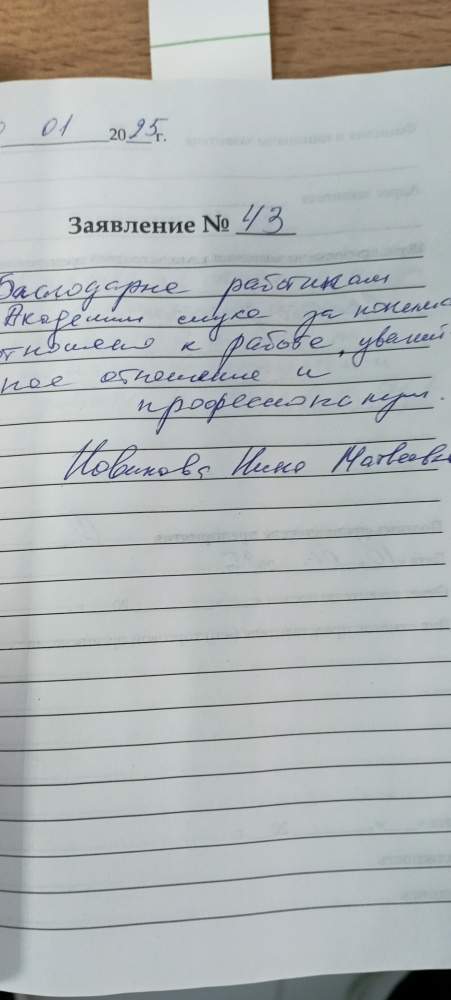 01 2025г.
Заявление № 43
Благодарю работникам
Академии слуха за
отношение к работе, уважи
ное отношение и
профессионализм.
Новикова Нина Матвеевна